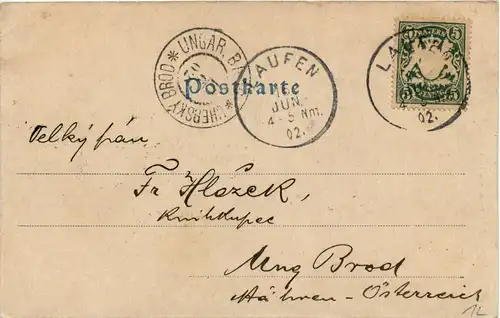 BAYERN
5
5 5
LAUFEN
JUN.
4-5 Nm.
02.
UNGAR. BROD
UHERSKÝ BROD
Postkarte
LAUFEN
02.
Velký pán,
Fr Hlozek,
Knihkupec
Ung Brod
Mähren-Österreich
12